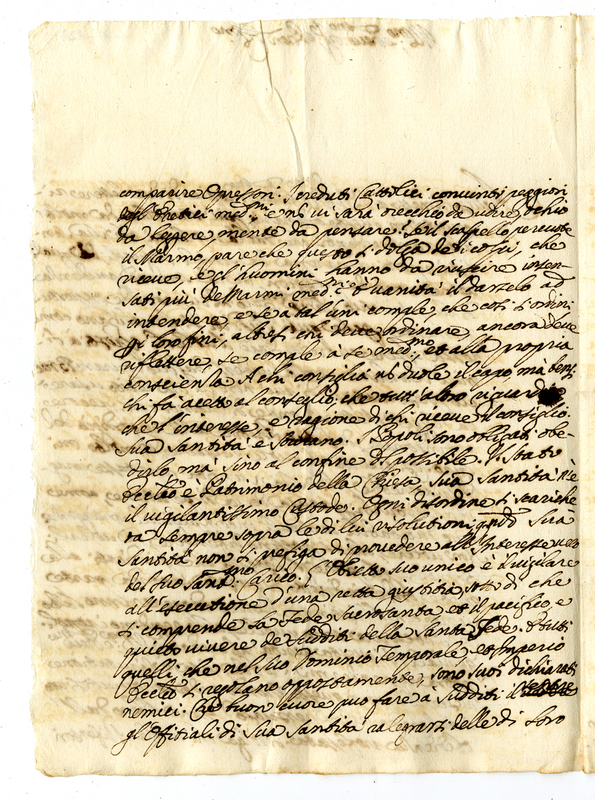 comparire Oppressori. I creduti Cattolici convinti peggiori
degl'Eretici med.mi e non vi sarà orecchio da udire, occhio
da leggere mente da pensare. Se il scarpello percuote
il Marmo, pare che questo si dolga de' colpi, che
riceve, e gl'huomini hanno da riuscire insen-
sati più de Marmi med.mi è vanità il darselo ad
intendere, e se à tal'uni comple, che così si ordini
pi loro fini, altresi chi deve ordinare ancora deve
riflettere, se comple à se med.mo, et alla propria
conscienza. A chi consiglia nò duole il capo, mà bensi
chi fà acetto al conseglio, che tutt'altro riguarda
che l'interesse, e ragione di chi riceve il consiglio.
Sua Santità è Sovrano. I Popoli sono obligati obe-
dirlo, mà sino al confine del possibile. Il Stato
Eccl.co è Patrimonio della Chiesa Sua Santità n'è
il vigilantissimo Custode. Ogni disordine si scariche
rà sempre sopra le di lui risolutioni, quando Sua
Santità non si prefiga di provedere all'Interesse vero
del suo Sant.mo Carico. L'Obietto suo unico è il vigilare
all'esecutione d'una retta giustitia, sotto di che
si comprende la Fede sacrosanta et il pacifico, e
quieto vivere de Sudditi della Santa Sede. Et tutti
quelli che nel suo Dominio Temporale, et Imperio
Eccl.co si regolano oppostamente, sono suoi dichiarati
nemici. Che buon cuore può fare à Sudditi il
gl'Offitiali di Sua Santità ralegrarsi delle di loro